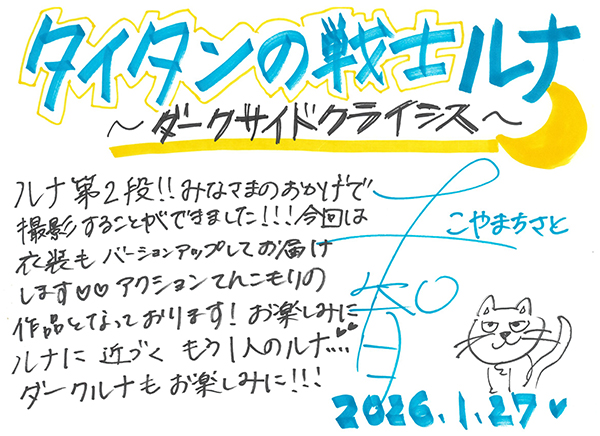 タイタンの戦士ルナ
～ダークサイドクライシス～
ルナ第2段!!みなさまのおかげで
撮影することができました!!!今回は
衣装もバージョンアップしてお届け
します♡♡アクションてんこもりの
作品となっております!お楽しみに
ルナに近づくもう1人のルナ....♥♥
ダークルナもお楽しみに!!!
こやまちさと
千智
2026.1.27♥